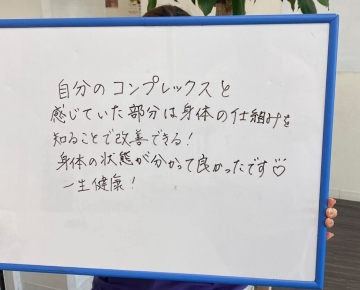 自分のコンプレックスと
感じていた部分は身体の仕組みを
知ることで改善できる!
身体の状態が分かって良かったです♡
一生健康!